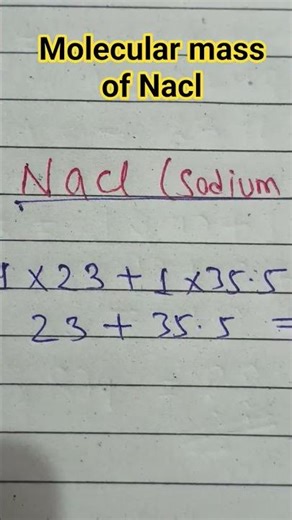 Molecular mass
of Nacl
Nacl (Sodium
1 x 23 + 1 x 35.5
23 + 35.5 =